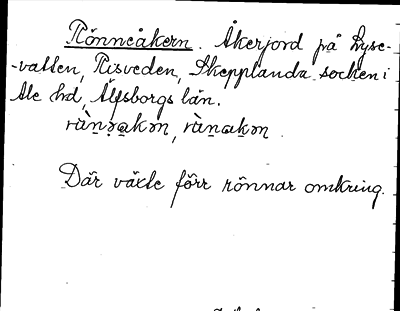 Rönneåkern. Åkerjord på Lyse-
-vallen, Risveden, Skepplanda socken i
Ale hd, Älfsborgs län.
Där växte förr rönnar omkring.